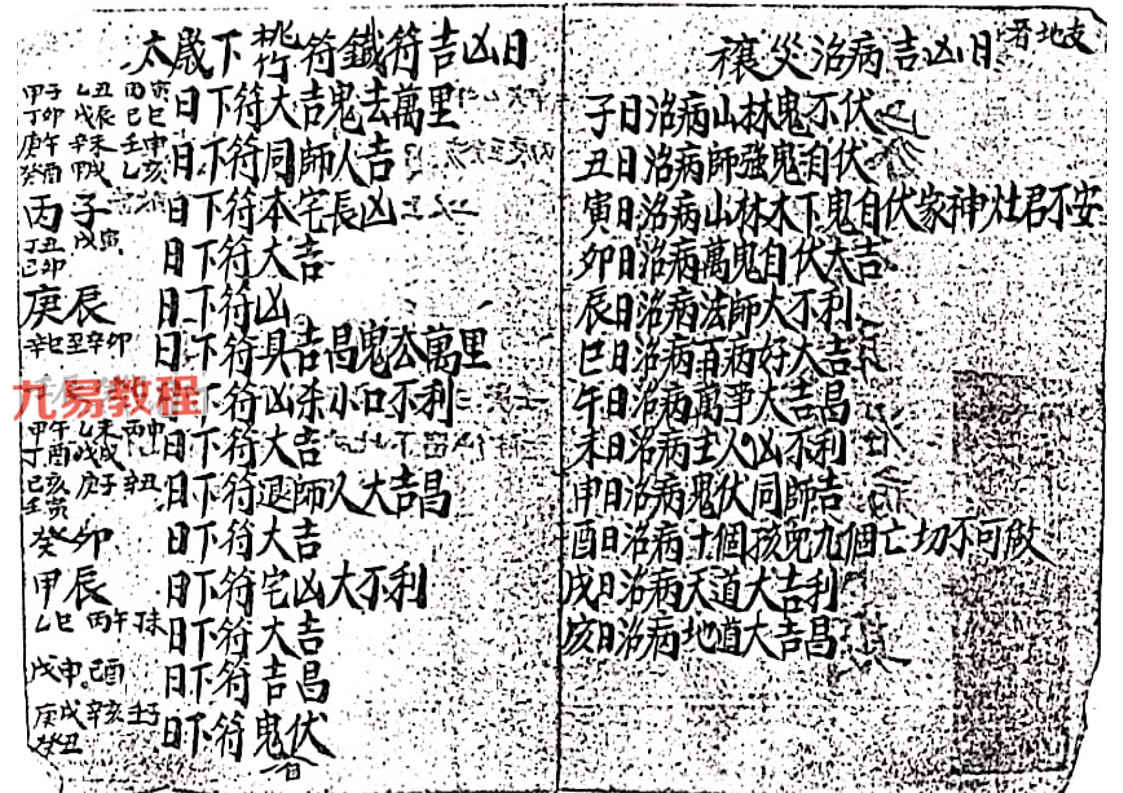 禳災治病吉凶日 看地支
子日治病山林鬼不伏
丑日治病師强鬼自伏
寅日治病山林木下鬼自伏家神灶君不安
卯日治病萬鬼自伏大吉
辰日治病法師大不利
巳日治病百病好大吉
午日治病萬事大吉昌
未日治病主人凶不利
申日治病鬼伏同師吉
酉日治病十個孩兒九個亡切不可做
戌日治病天道大吉利
亥日治病地道大吉昌
太歲下桃竹符鐵符吉凶日
甲子 乙丑 丙寅 丁卯 戊辰 己巳 日下符大吉鬼去萬里
庚午 辛未 壬申 癸酉 甲戌 乙亥 日下符同師人吉
丙子 日下符本宅長凶
丁丑 戊寅 己卯 日下符大吉
庚辰 日下符凶
辛巳至辛卯 日下符具吉昌鬼去萬里
下符凶杀小口不利
甲午 乙未 丙申 丁酉 戊戌 日下符大吉
己亥 庚子 辛丑 壬寅 日下符退師人大吉昌
癸卯 日下符大吉
甲辰 日下符宅凶大不利
乙巳 丙午 丁未 日下符大吉
戊申 己酉 日下符吉昌
庚戌 辛亥 壬子 癸丑 日下符鬼伏
九易教程